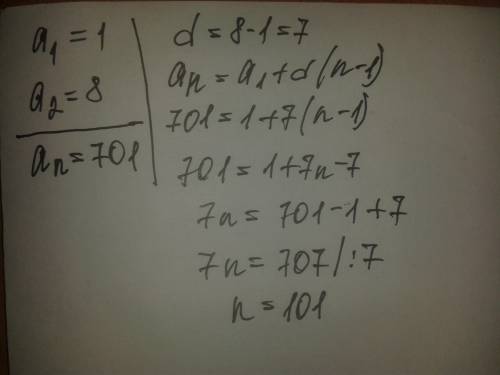 a₁ = 1
a₂ = 8
aₙ = 701
d = 8-1 = 7
aₙ = a₁ + d(n-1)
701 = 1 + 7(n-1)
701 = 1 + 7n - 7
7n = 701 - 1 + 7
7n = 707 /:7
n = 101